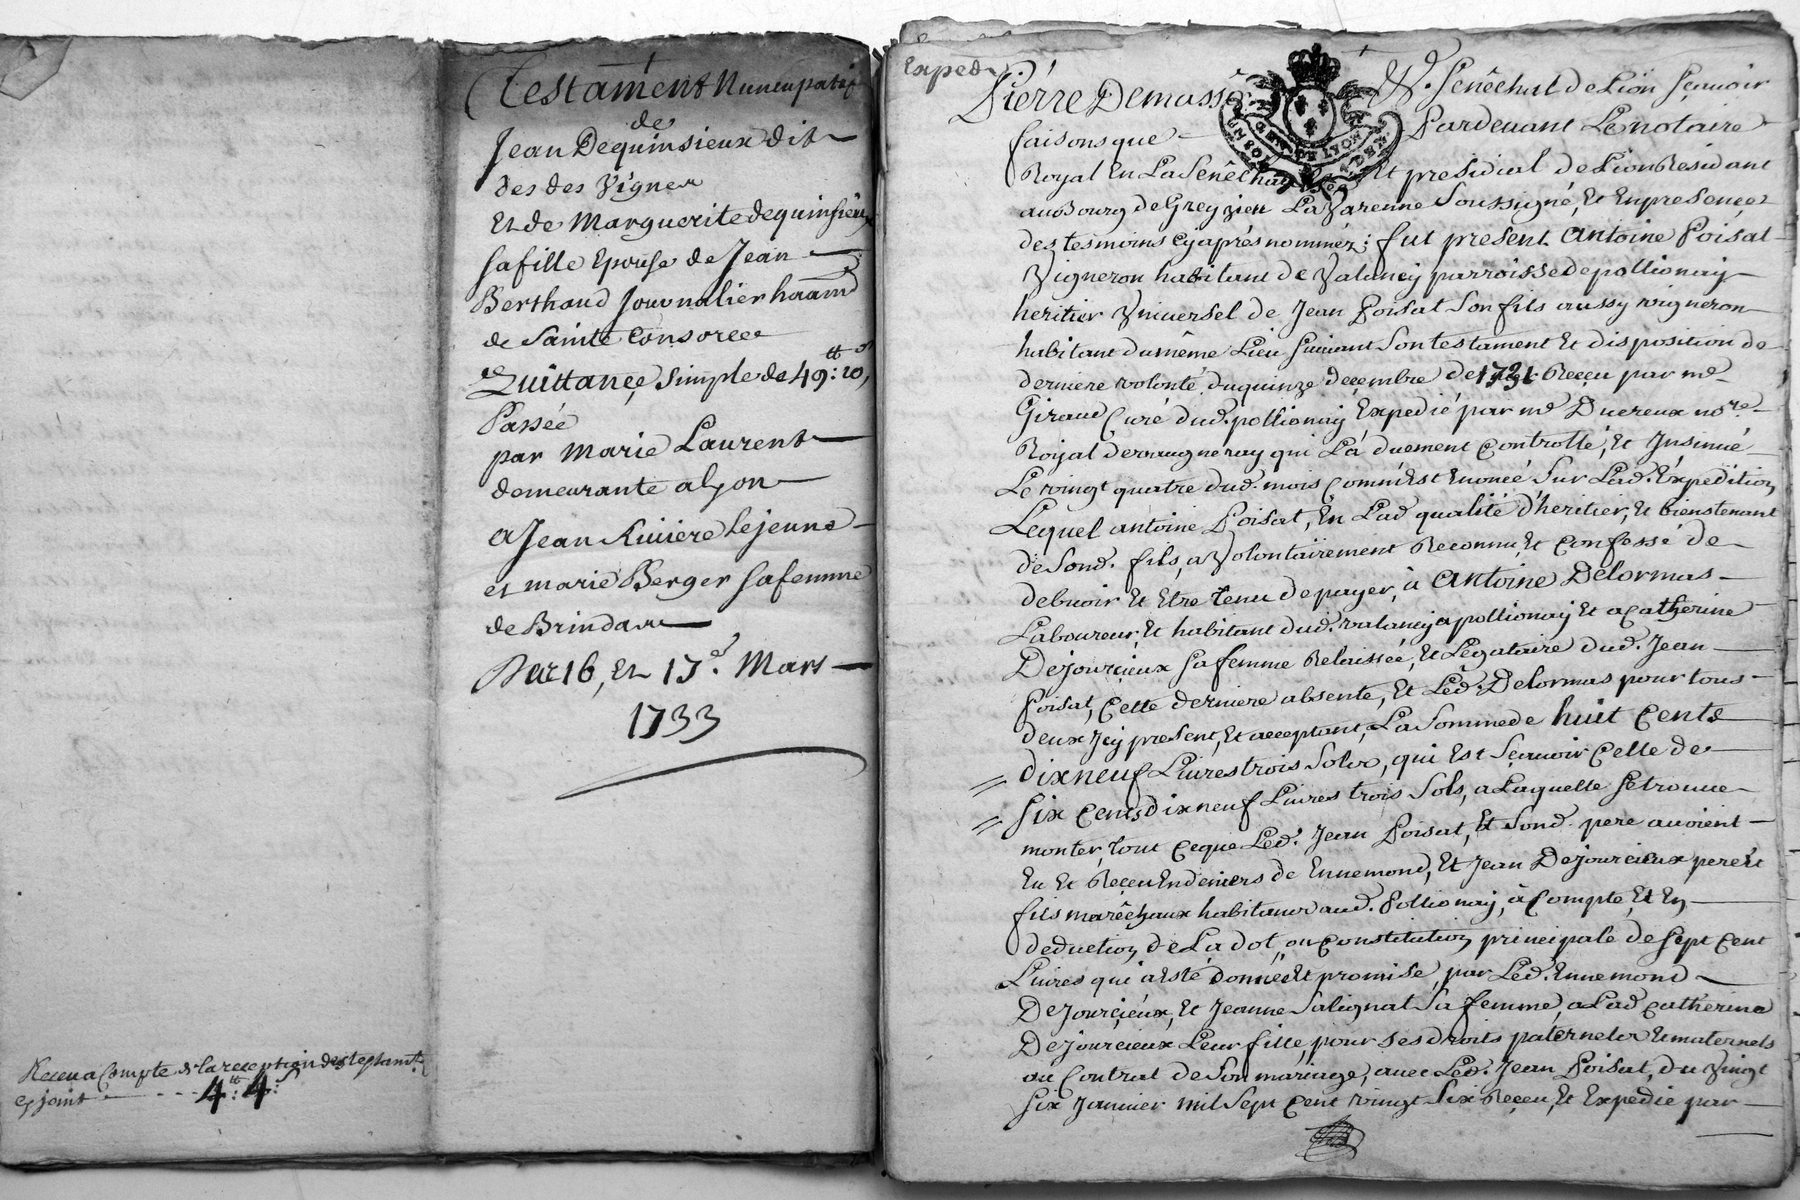 Testament Nuncupatif
de
Jean Dequinsieux dit
des des Vignes
Et de Marguerite dequinsieux
sa fille Epouse de Jean
Berthaud Journalier haant
de Sainte Consorce
Quittance, simple de 49:10,
Passée
par Marie Laurent
demeurante a lyon
a Jean Riviere le jeune
et marie Berger sa femme
de Brindas
Des 16, et 17e. Mars
1733
Receu a Compte de la reception des testamts.
cy joint - - - 4tt: 4s
Exped
Pierre Demasso Senêchal de Lion sçavoir
faisons que Pardevant Le notaire
Royal En La Senêchaussée Et presidial de Lion Residant
au Bourg de Grezzieu La Varenne Soussigné, Et En presence
des tesmoins cy aprés nommez; fut present Antoine Poisat
Vigneron habitant de Valency parroisse de pollionay
heritier Vniversel de Jean Poisat Son fils aussy vigneron
habitant du même Lieu suivant Son testament Et disposition de
derniere volonté du quinze decembre de 1731 Receu par me
Giraud Curé dud. pollionay, Expedié par me Ducreux nore
Royal de vaugneray qui L'a duement Controllé, Et Insinué
Le vingt quatre dud. mois comm'Est Enoncé Sur Lad. Expedition
Lequel Antoine Poisat, En Lad qualité d'heritier, Et bienstenant
de Sond. fils, a Volontairement Reconnu, Et Confessé de
debvoir Et Etre tenu de payer, à Antoine Delormas
Laboureur, Et habitant dud. valency a pollionay Et a Catherine
Dejourcieux sa femme Relaissée, Et Légataire dud. Jean
Poisat, Cette derniere absente, Et Led. Delormas pour tous
deux Jcy present, Et acceptant, La Somme de huit Cents
dix neuf Livres trois Solz, qui Est Sçavoir Celle de
Six Cents dix neuf Livres trois Sols, a Laquelle Se trouve
monter, tout Ceque Led. Jean Poisat, Et Sond. pere avoient
Eu Et Receu En deniers de Ennemond, Et Jean Dejourcieux pere Et
fils marêchaux habitans aud. Pollionay, à Compte, Et En
deduction de La dot, ou Constitution principale de Sept Cent
Livres qui a Esté donnée Et promise, par Led. Ennemond
Dejourcieux, Et Jeanne Salignat Sa femme, a Lad Catherine
Dejourcieux Leur fille, pour Ses droits paternels Et maternels
au Contrat de Son mariage, avec Led. Jean Poisat, du Vingt
Six Janvier mil Sept Cent vingt Six Receu, Et Expedié par